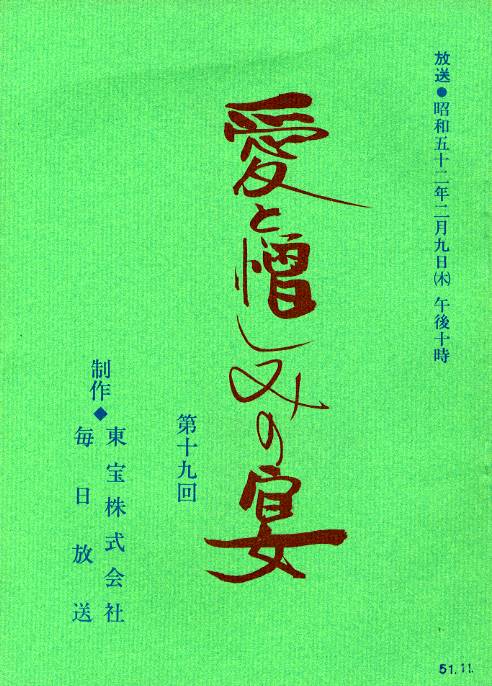 放送●昭和五十二年二月九日㈭ 午後十時
愛と憎しみの宴
第十九回
制作◆東宝株式会社
毎日放送
51.11.